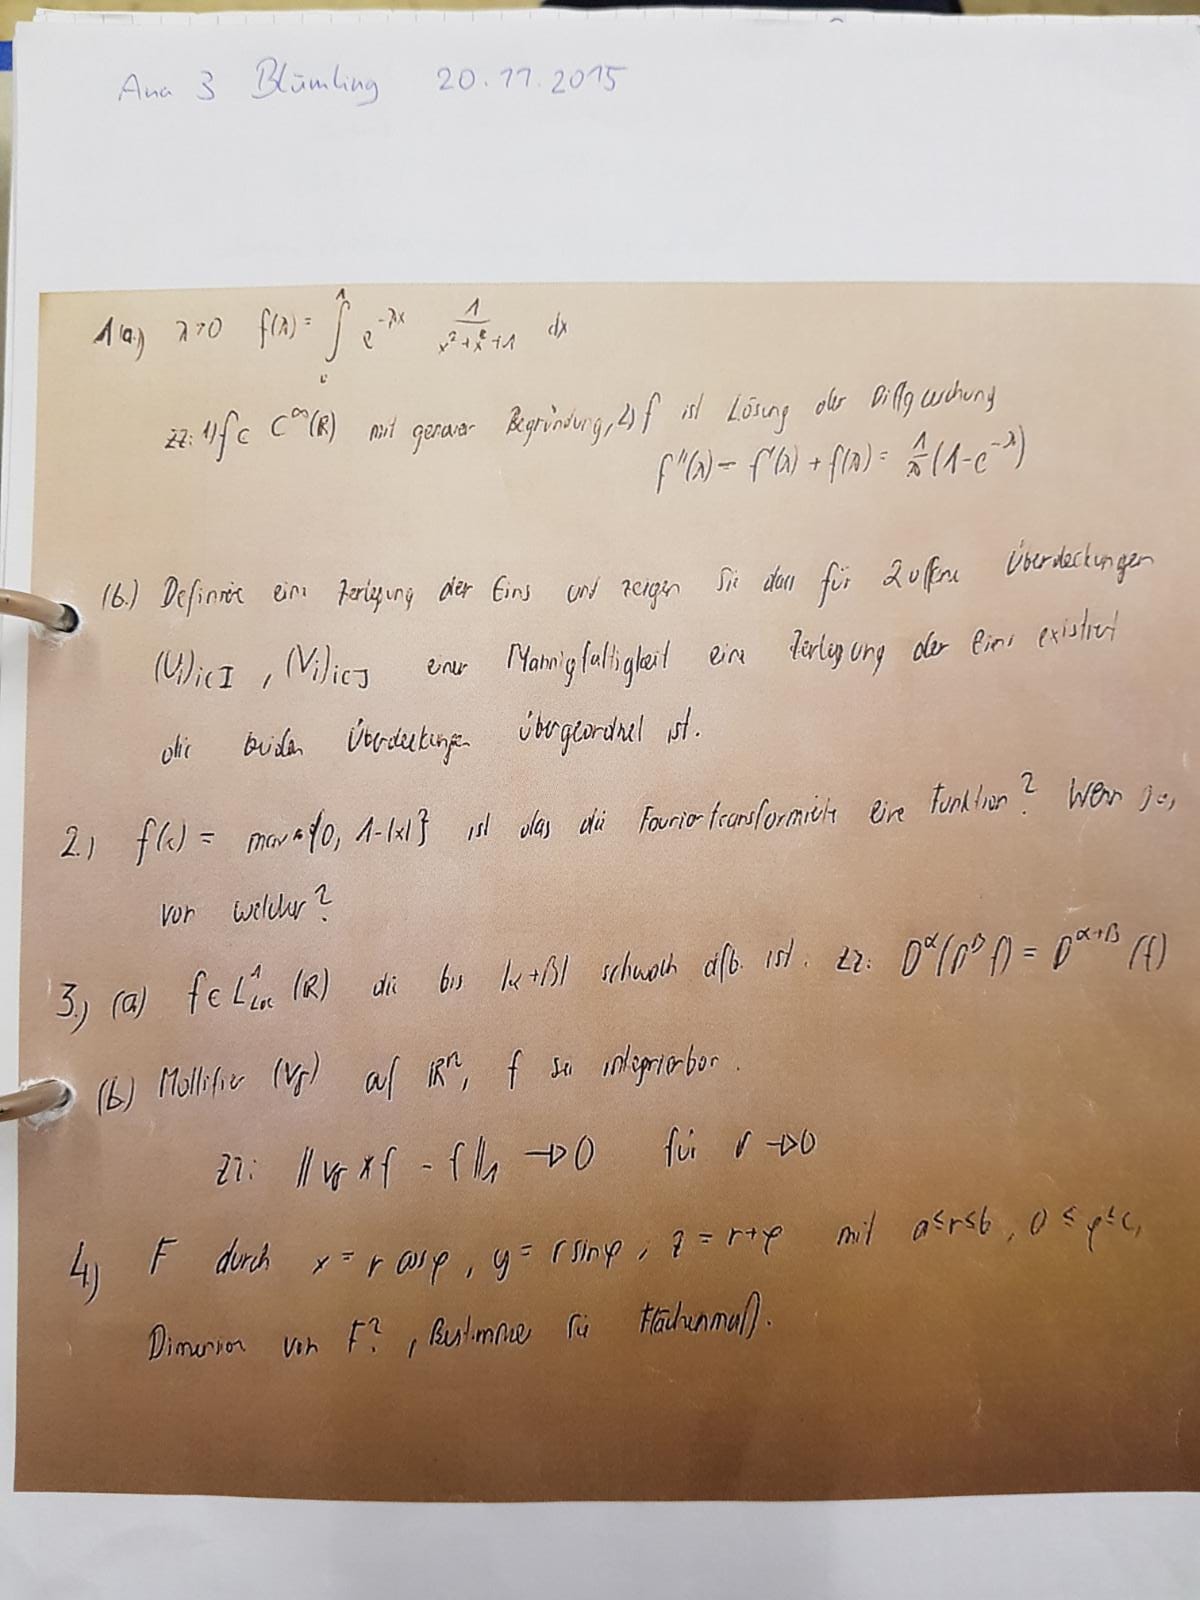 Ana 3 Blümling 20.11.2015
1(a.) λ>0 f(λ) = ∫₀¹ e^{-λx} 1/(x²+x+1) dx
zz: 1) f ∈ C^∞(R) mit genauer Begründung, 2) f ist Lösung der Diffgleichung
f''(λ) - f'(λ) + f(λ) = 1/λ (1-e^{-λ})
(b.) Definiere eine Zerlegung der Eins und zeigen Sie dass für 2 offene Überdeckungen
(U_i)_{i∈I} , (V_i)_{i∈J} einer Mannigfaltigkeit eine Zerlegung der Eins existiert
die beiden Überdeckungen übergeordnet ist.
2.) f(x) = max {0, 1-|x|} ist das die Fouriertransformierte eine Funktion? Wenn ja,
von welcher?
3.) (a) f ∈ L¹_{Loc} (R) die bis |α+β| schwach dfb. ist. zz: D^α(D^β f) = D^{α+β} (f)
(b.) Mollifier (v_δ) auf R^n, f sei integrierbar.
zz: ||v_δ * f - f||₁ → 0 für δ → 0
4.) F durch x = r cosφ, y = r sinφ, z = r+φ mit a≤r≤b, 0≤φ≤c,
Dimension von F?, Bestimme Sie Flächenmaß.